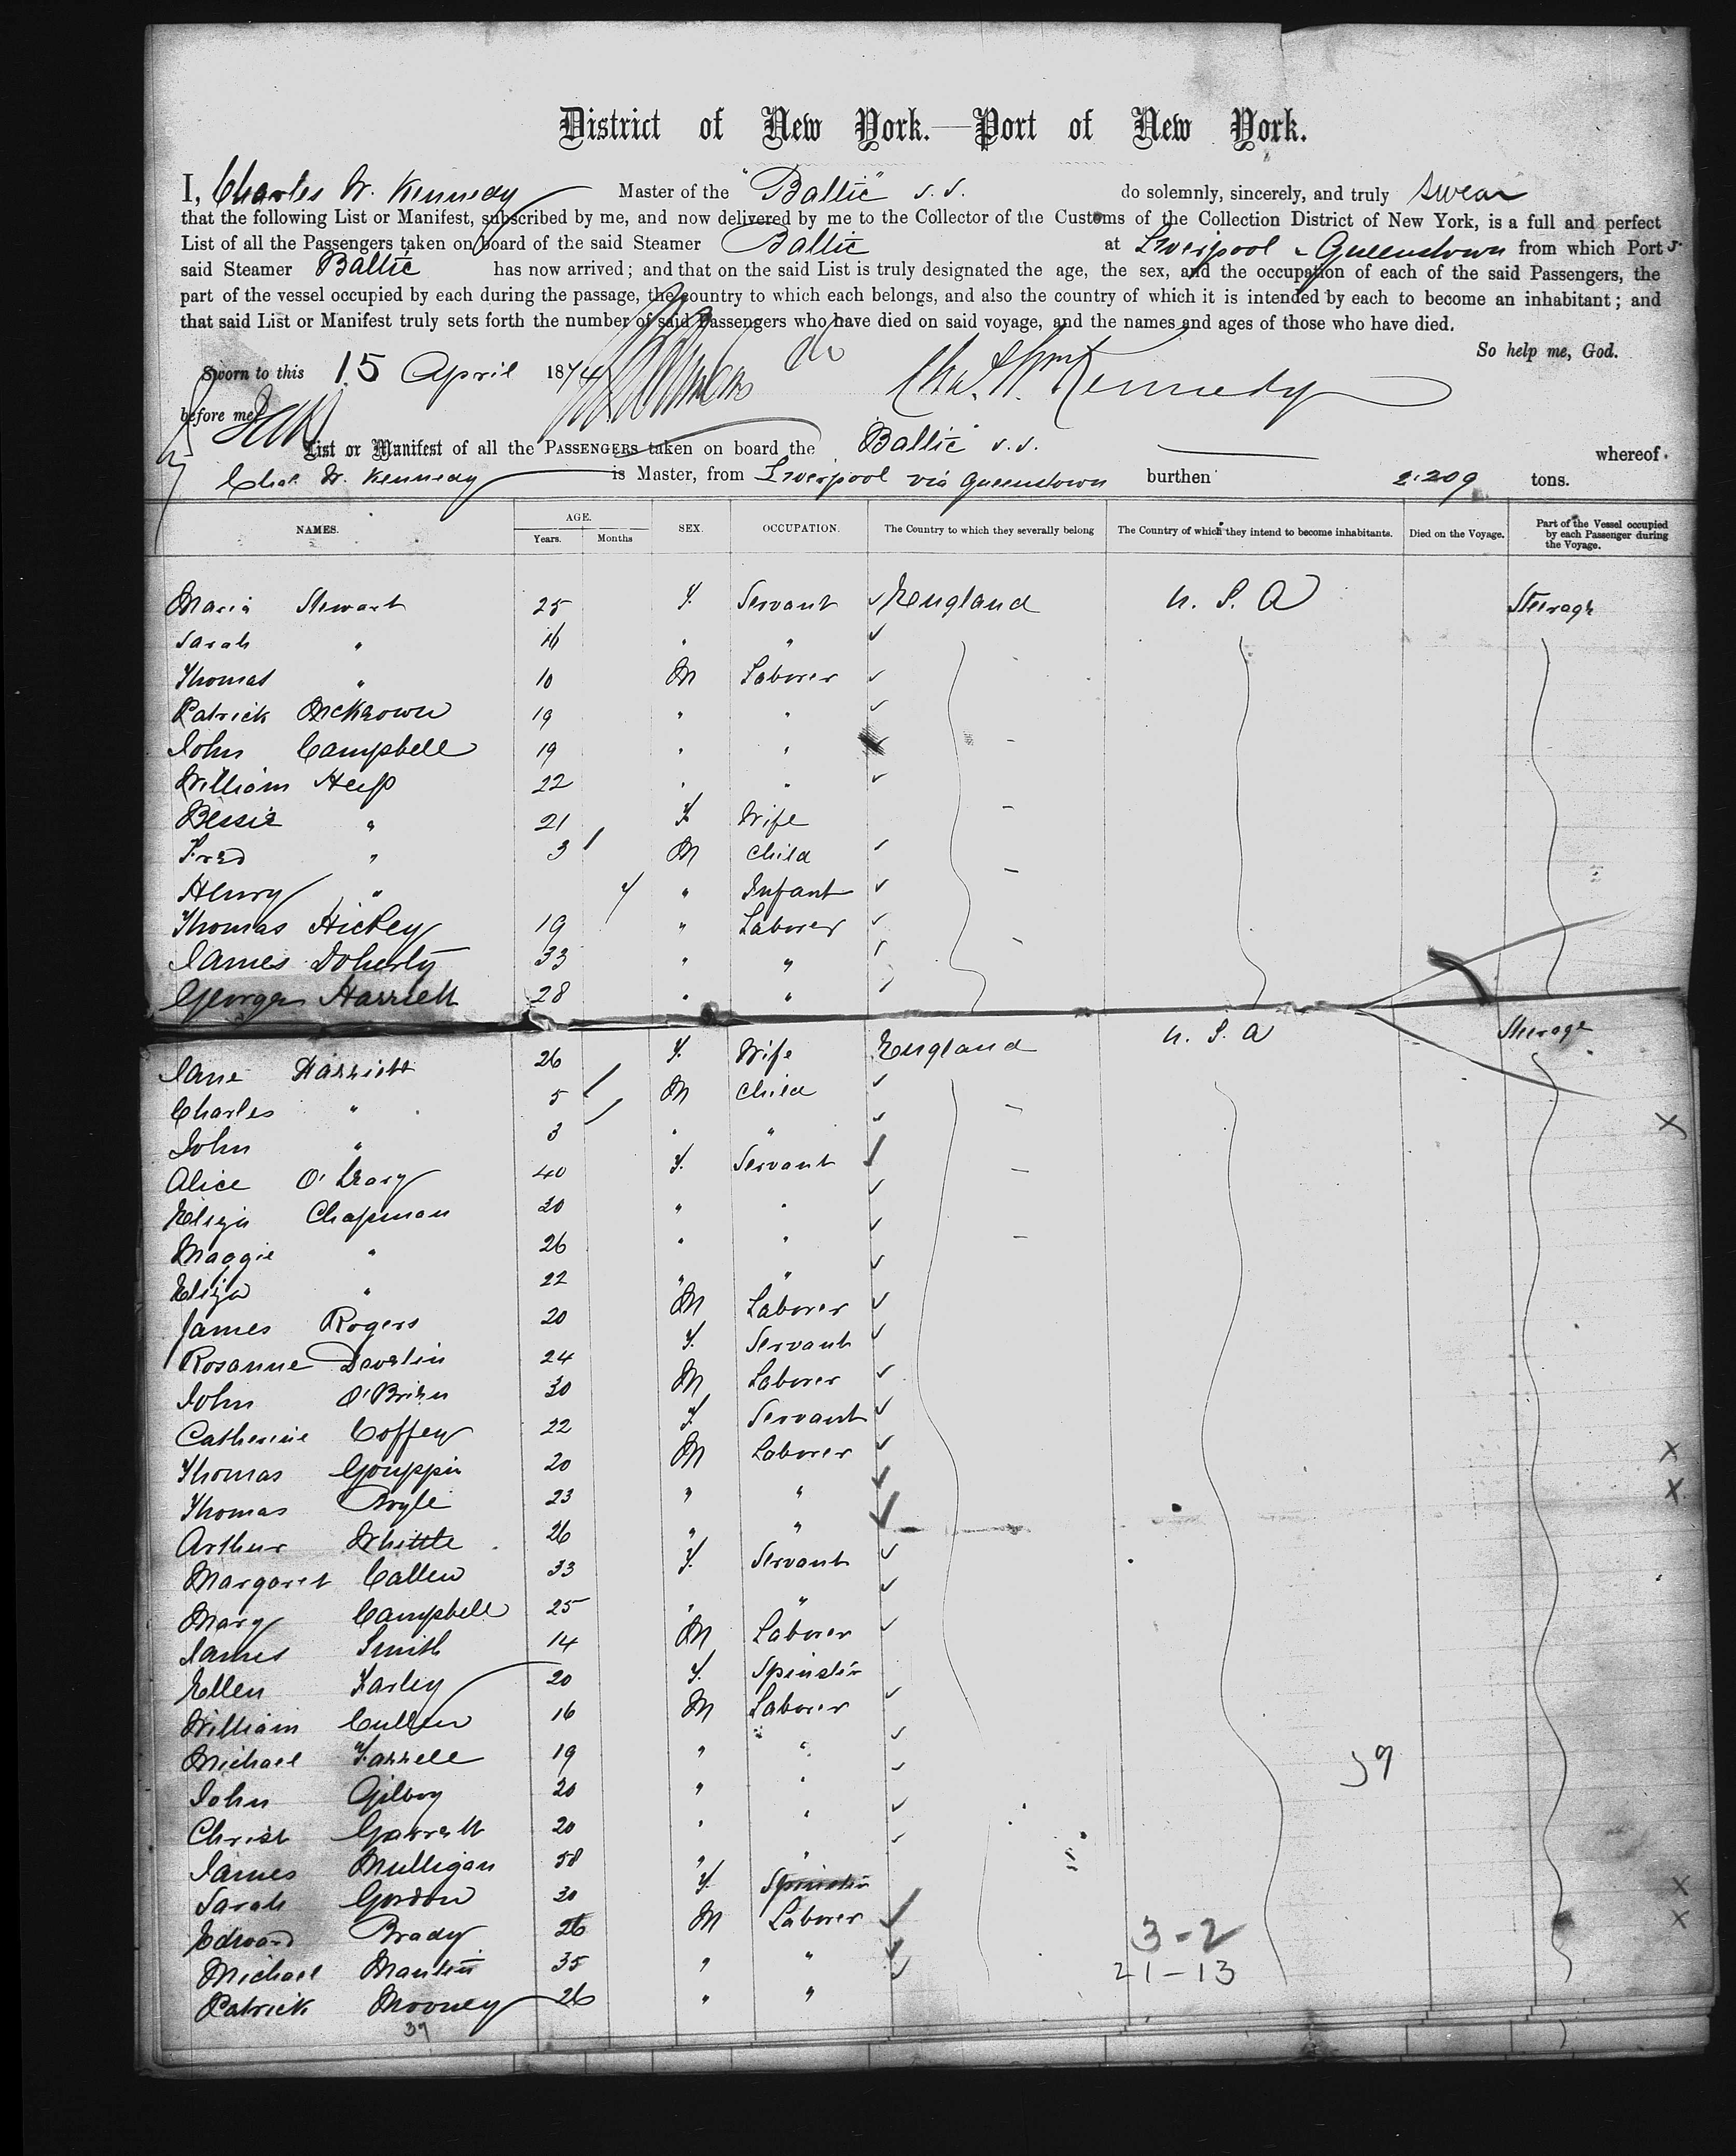 District of New York.—Port of New York.
I, Charles W. Kennedy Master of the "Baltic" s.s. do solemnly, sincerely, and truly swear
that the following List or Manifest, subscribed by me, and now delivered by me to the Collector of the Customs of the Collection District of New York, is a full and perfect
List of all the Passengers taken on board of the said Steamer Baltic at Liverpool & Queenstown from which Port s
said Steamer Baltic has now arrived; and that on the said List is truly designated the age, the sex, and the occupation of each of the said Passengers, the
part of the vessel occupied by each during the passage, the country to which each belongs, and also the country of which it is intended by each to become an inhabitant; and
that said List or Manifest truly sets forth the number of said Passengers who have died on said voyage, and the names and ages of those who have died.
So help me, God.
Sworn to this 15 April 1874 Chas. W. Kennedy
before me
List or Manifest of all the PASSENGERS taken on board the Baltic s.s. whereof
Chas. W. Kennedy is Master, from Liverpool via Queenstown burthen 2,209 tons.
NAMES. AGE. Years. Months SEX. OCCUPATION. The Country to which they severally belong The Country of which they intend to become inhabitants. Died on the Voyage. Part of the Vessel occupied by each Passenger during the Voyage.
Maria Stewart 25 F. Servant England U.S.A Steerage
Sarah " 16 " "
Thomas " 10 M Laborer
Patrick McKeown 19 " "
John Campbell 19 " "
William Hess 22 " "
Bessie " 21 F. Wife
Fred " 3 M Child
Henry " " Infant
Thomas Hickey 19 " Laborer
James Doherty 33 " "
George Harriett 28 " "
Jane Harriett 26 F. Wife England U.S.A Steerage
Charles " 5 M Child
John " 3 " "
Alice O'Leary 40 F. Servant
Eliza Chapman 20 " "
Maggie " 26 " "
Eliza " 22 " "
James Rogers 20 M Laborer
Rosanne Develin 24 F. Servant
John O'Brien 30 M Laborer
Catherine Coffey 22 F. Servant
Thomas 20 M Laborer
Thomas Boyle 23 " "
Arthur Whittle 26 " "
Margaret Callen 33 F. Servant
Mary Campbell 25 " "
James Smith 14 M Laborer
Ellen Farley 20 F. Spinster
William Cullen 16 M Laborer
Michael Farrell 19 " "
John Gilboy 20 " "
Christ Garrett 20 " "
James Mulligan 58 " "
Sarah Gordon 30 F. Spinster
Edward Brady 26 M Laborer
Michael 35 " "
Patrick Mooney 26 " "
39
3-2
21-13
39